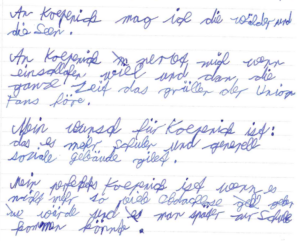 An Koepenick mag ich die wälder und
die Seen.
An Koepenick nervt mich wenn
einschlafen will und dan, die
ganze Zeit das gröllen der Union
Fans höre.
Mein wunsch für Koepenick ist:
das es mehr schulen und generell
soziale gebäude giebt.
Mein perfektes Koepenick ist wenn es
nicht mehr so viele obdachlose geben
würde und man später zur Schule
kommen könnte.